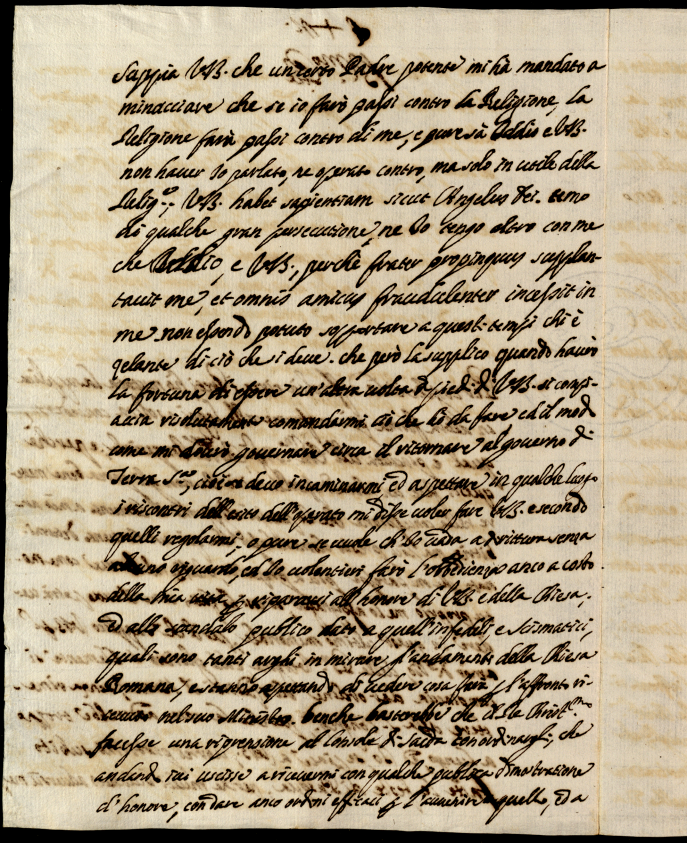 Sappia V.B. che un certo Padre potente mi hà mandato a
minacciare che se io farò passi contro la Religione, La
Religione farà passi contro di me, e pure sà Iddio e V.B.
non haver Io parlato, ne operato contro, ma solo in utile della
Relig.e; V.B. habet sapientiam sicut Angelus Dei. temo
di qualche gran persecutione, ne Io tengo altro con me
che Iddio, e V.B., perchè frater propinquus supplan-
tavit me, et omnis amicus fraudulenter incessit in
me. non essendo potuto sopportare a questi tempi chi è
zelante di ciò che si deve. che però la supplico quando haverò
la fortuna di essere un'altra volta a piedi di V.B. si compi-
accia risolutamente comandarmi ciò che hò da fare ed il modo
come mi doverò governare circa il ritornare al governo di
Terra S.ta, cioè se devo incaminarmi, ed aspettare in qualche luogo
i riscontri dell'esito dell'operato mi disse voler fare V.B. e secondo
quelli regolarmi, o pure se vuole ch'Io vada a drittura senza
alcuno riguardo, ed Io volentieri farò l'obedienza anco a costo
della mia vita p riparare all'honore di V.B. e della Chiesa;
ed allo scandalo publico dato a quell'infedeli, e Scismatici,
quali sono tanti arghi in mirare l'andamenti della Chiesa
Romana, e stanno aspettando di vedere cosa farà p l'affronto ri-
cevuto nel suo Ministro. benche basterebbe che il Rè Christ.mo
facesse una riprensione al Console di Saida con ordinargli, che
andand iui uscisse a ricevermi con qualche publica dimostratione
d'honore, con dare anco ordini efficaci p l'avvenire a quello, ed a